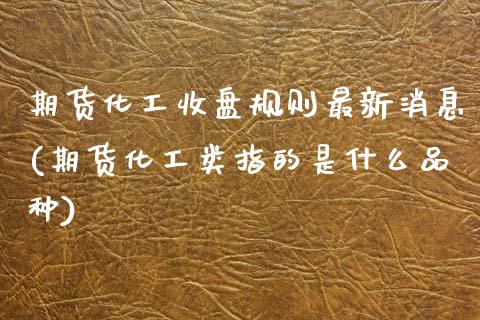 期货化工收盘规则最新消息
(期货化工类指的是什么品
种)